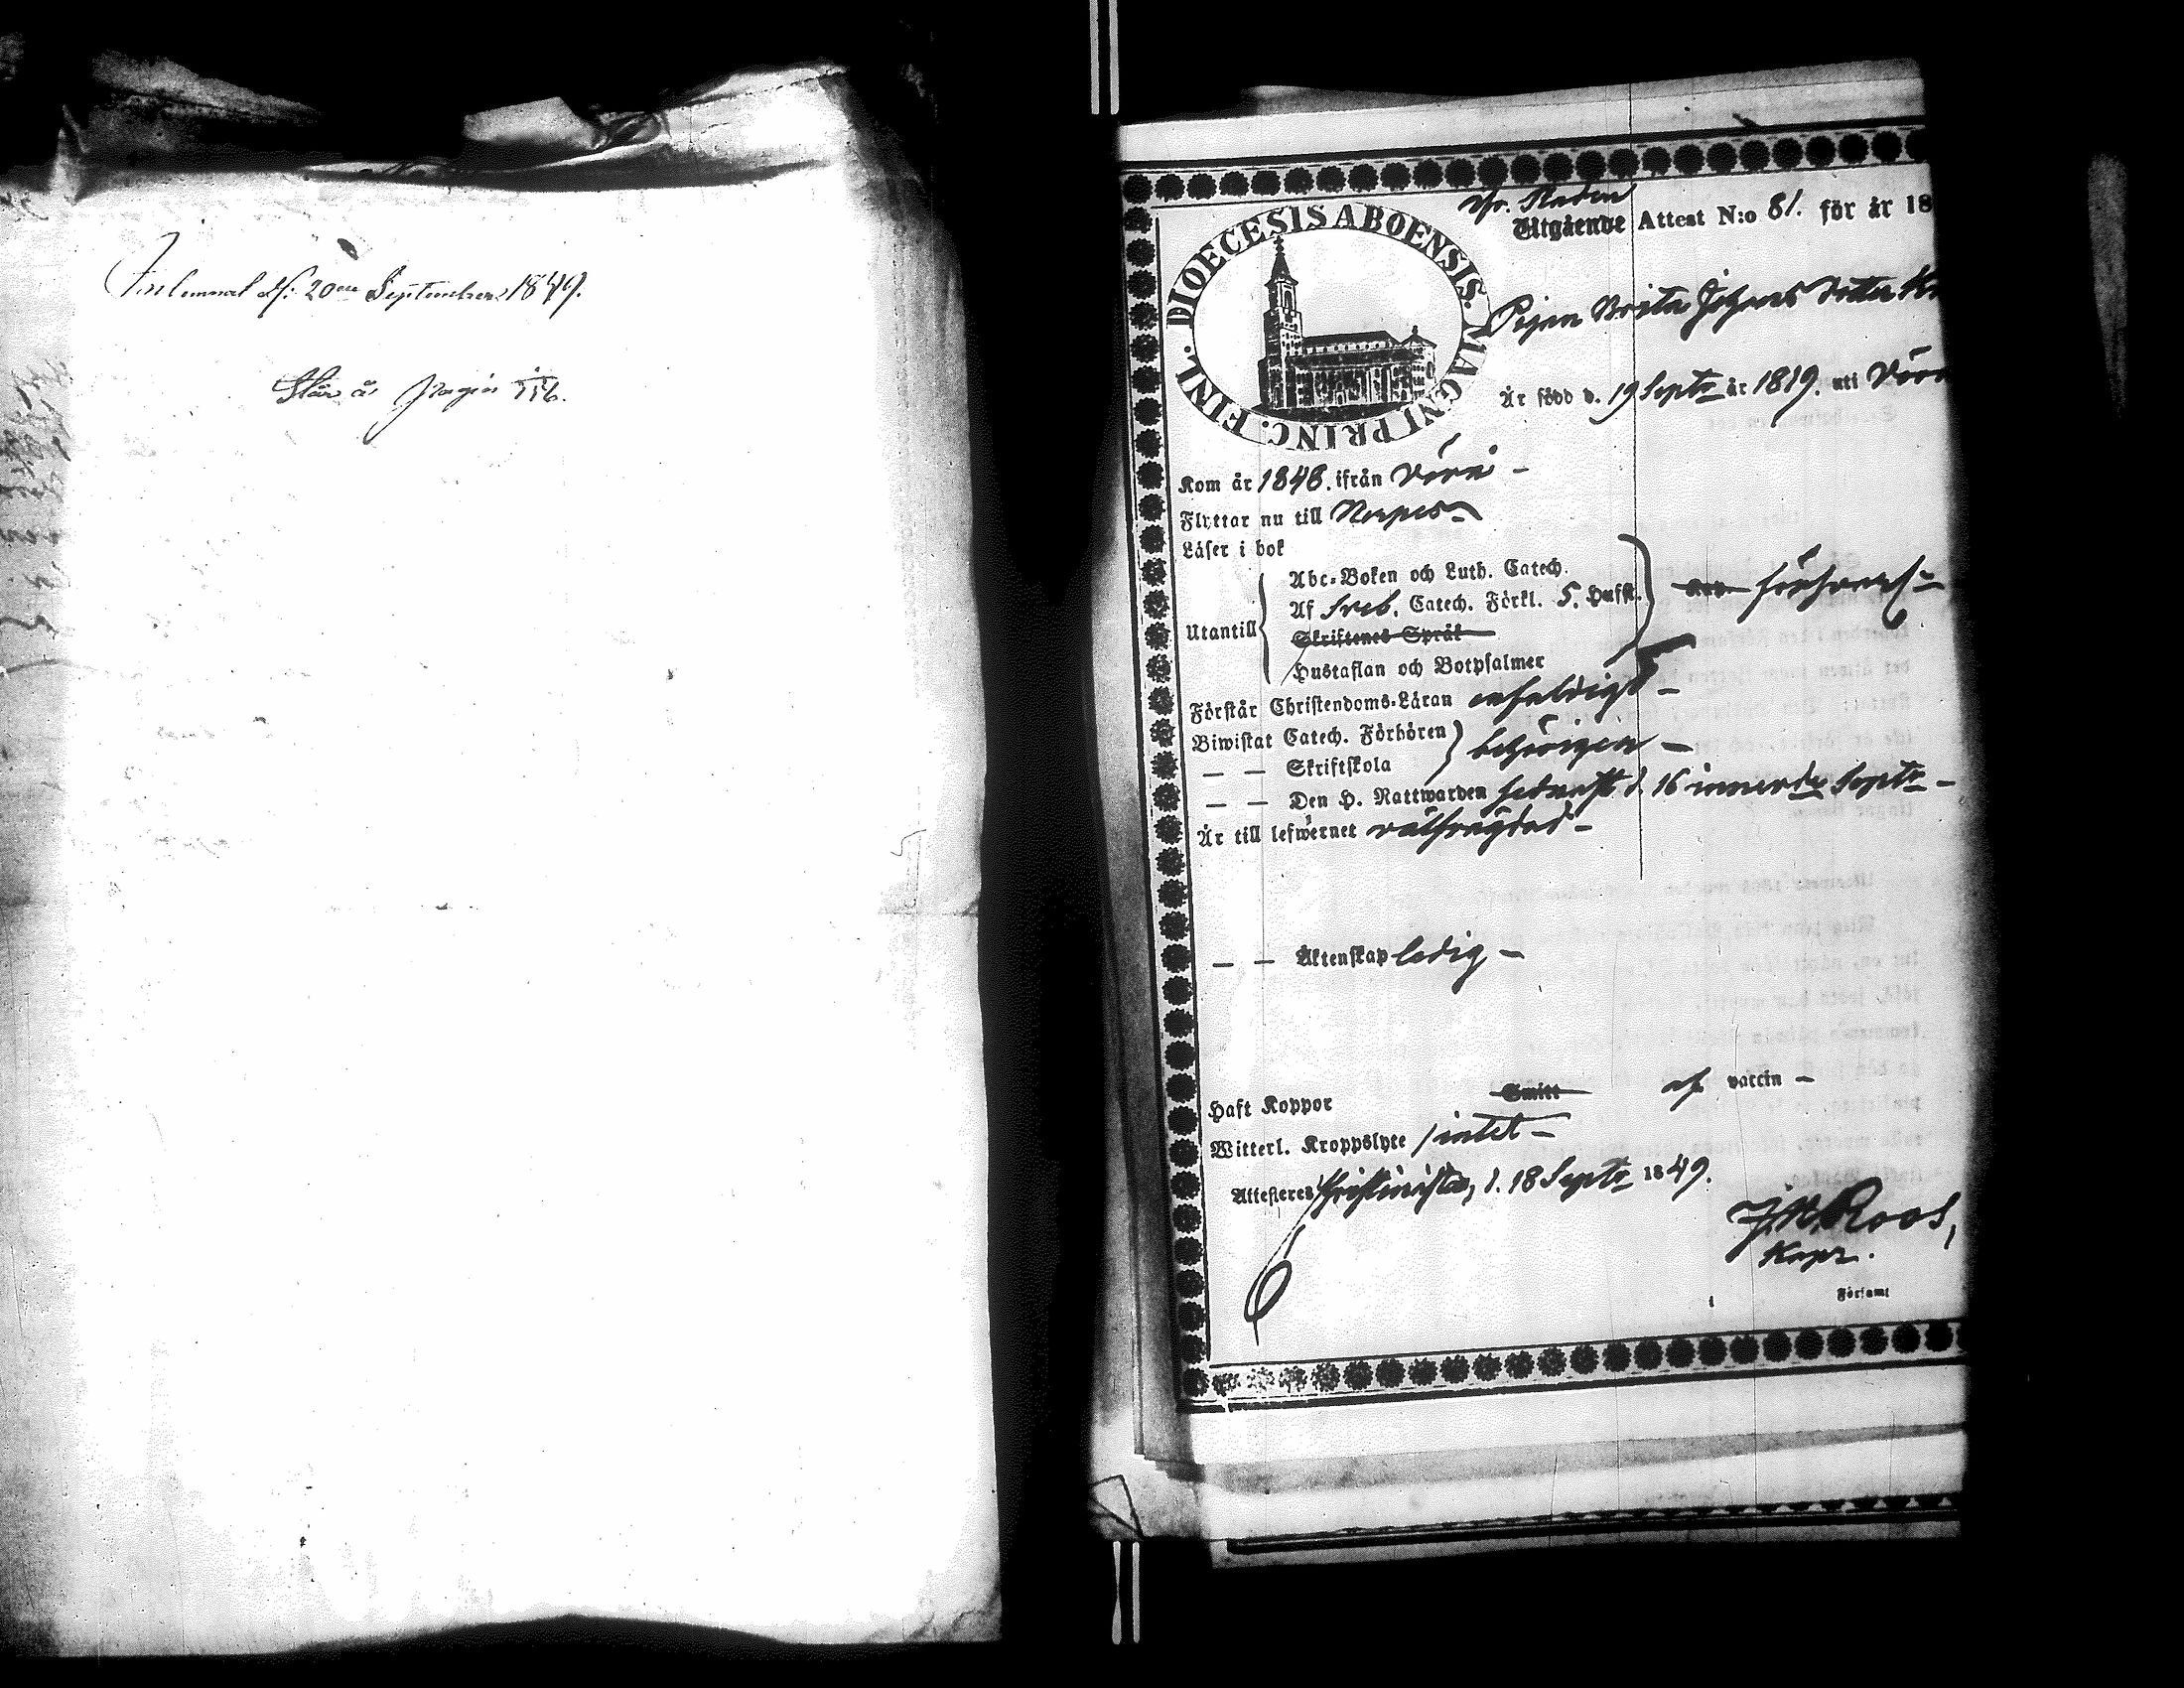 Inlemnad d: 20de September 1849.
Står å pagin 116.
fr. Staden
Utgående Attest N:o 81. för år 18
DIOECESIS ABOENSIS. MAGNI PRINC. FINL.
Pigan Brita Johans dotter
Är född d. 19 Septr år 1819. uti Vörå
Kom år 1848. ifrån Vörå –
Flyttar nu till Nerpes –
Läser i bok
Utantill
Abc-Boken och Luth. Catech.
Af Sveb. Catech. Förkl. 5. Hufst.
förswarl:
Skriftenes Språk
Hustaflan och Botpsalmer
Förstår Christendoms-Läran enfaldigt –
Biwistat Catech. Förhören
behörigen –
— — Skriftskola
— — Den H. Nattwarden sednast d. 16 innevde Septr –
Är till lefwernet wälfrägdad –
— — Äktenskap ledig –
Haft Koppor Smitt af vaccin –
Witterl. Kroppslyte intet –
Attesteres Christinestad, d. 18 Septr 1849.
J. H. Roos,
Kapn.
i Församl